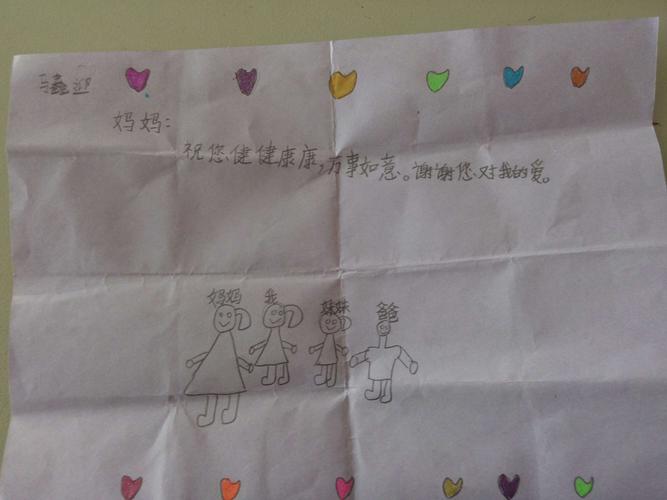 妈妈:
祝您健健康康,万事如意。谢谢您对我的爱。
妈妈 我 妹妹 爸爸